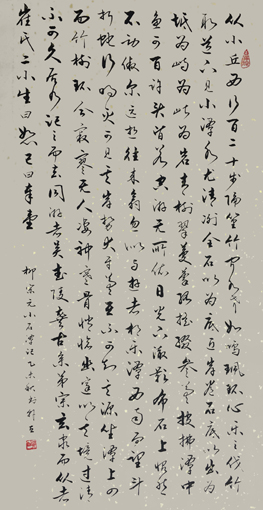 从小丘西行百二十步隔篁竹闻水声如鸣佩环心乐之伐竹
取道下见小潭水尤清冽全石以为底近岸卷石底以出为
坻为屿为嵁为岩青树翠蔓蒙络摇缀参差披拂潭中
鱼可百许头皆若空游无所依日光下澈影布石上怡然
不动俶尔远逝往来翕忽似与游者相乐潭西南而望斗
折蛇行明灭可见其岸势犬牙差互不可知其源坐潭上四
面竹树环合寂寥无人凄神寒骨悄怆幽邃以其境过清
不可久居乃记之而去同游者吴武陵龚古余弟宗玄隶而从者
崔氏二小生曰恕己曰奉壹
柳宗元小石潭记乙未秋